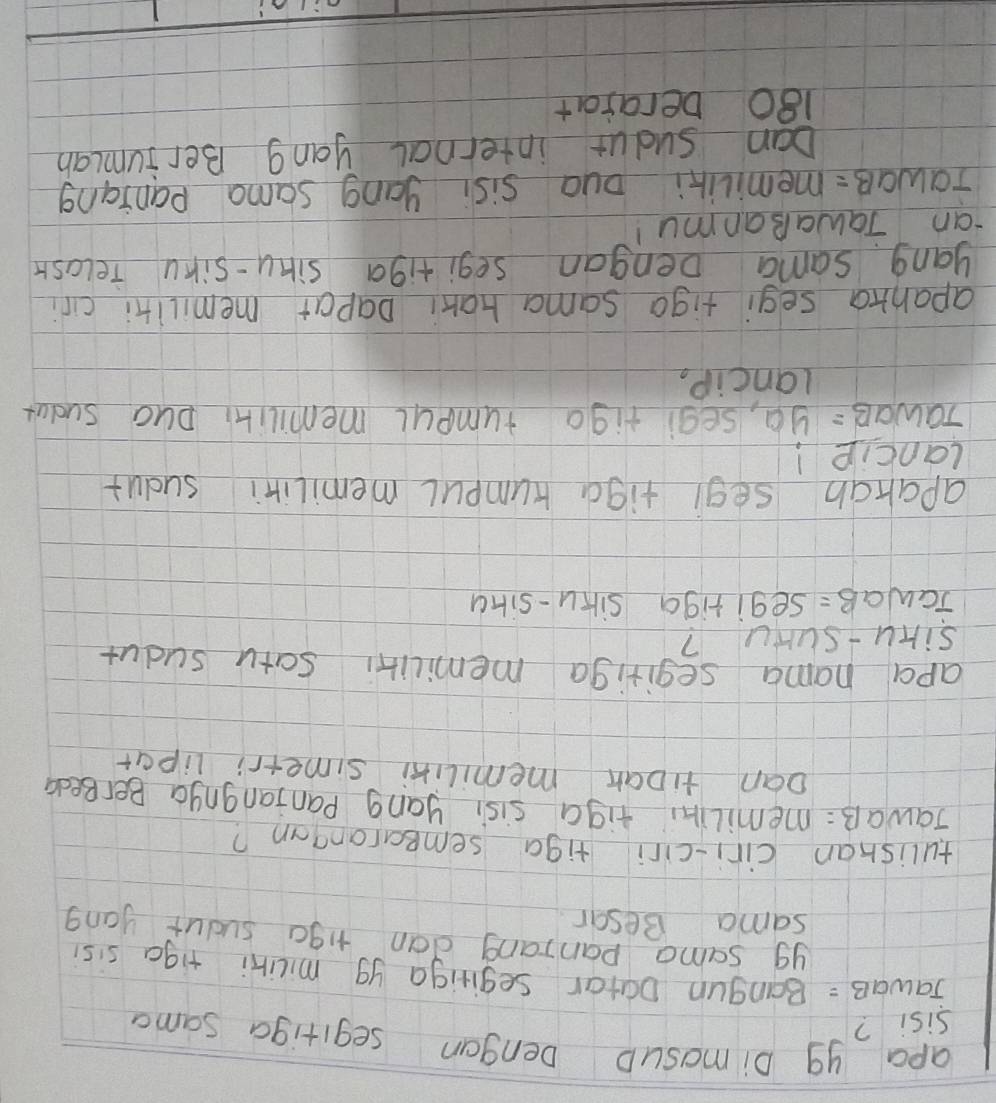 apa yg Dimasud Dengan segitiga sama
sisi ?
Jawab = Bangun Datar segitiga yg miliki tiga sisi
yg sama panjang dan tiga sudut yang
sama Besar
tuliskan ciri-ciri tiga sembarangan ?
Jawab = memiliki tiga sisi yang Panjangnya BerBeda
Dan tiDak memiliki simetri Lipat
apa nama segitiga memiliki satu sudut
siku-suku ?
Jawab = segitiga siku-siku
apakah segi tiga kumpul memiliki sudut
Lancip !
Jawab = ya, segi tiga tumpul memiliki Dua sudut
Lancip.
apahka segi tiga sama kaki Dapat memiliki ciri
yang sama Dengan segitiga siku-siku Jelask
-an Jawabanmu !
Jawab = memiliki Dua sisi yang sama Panjang
Dan sudut internal yang Berjumlah
180 Derajat